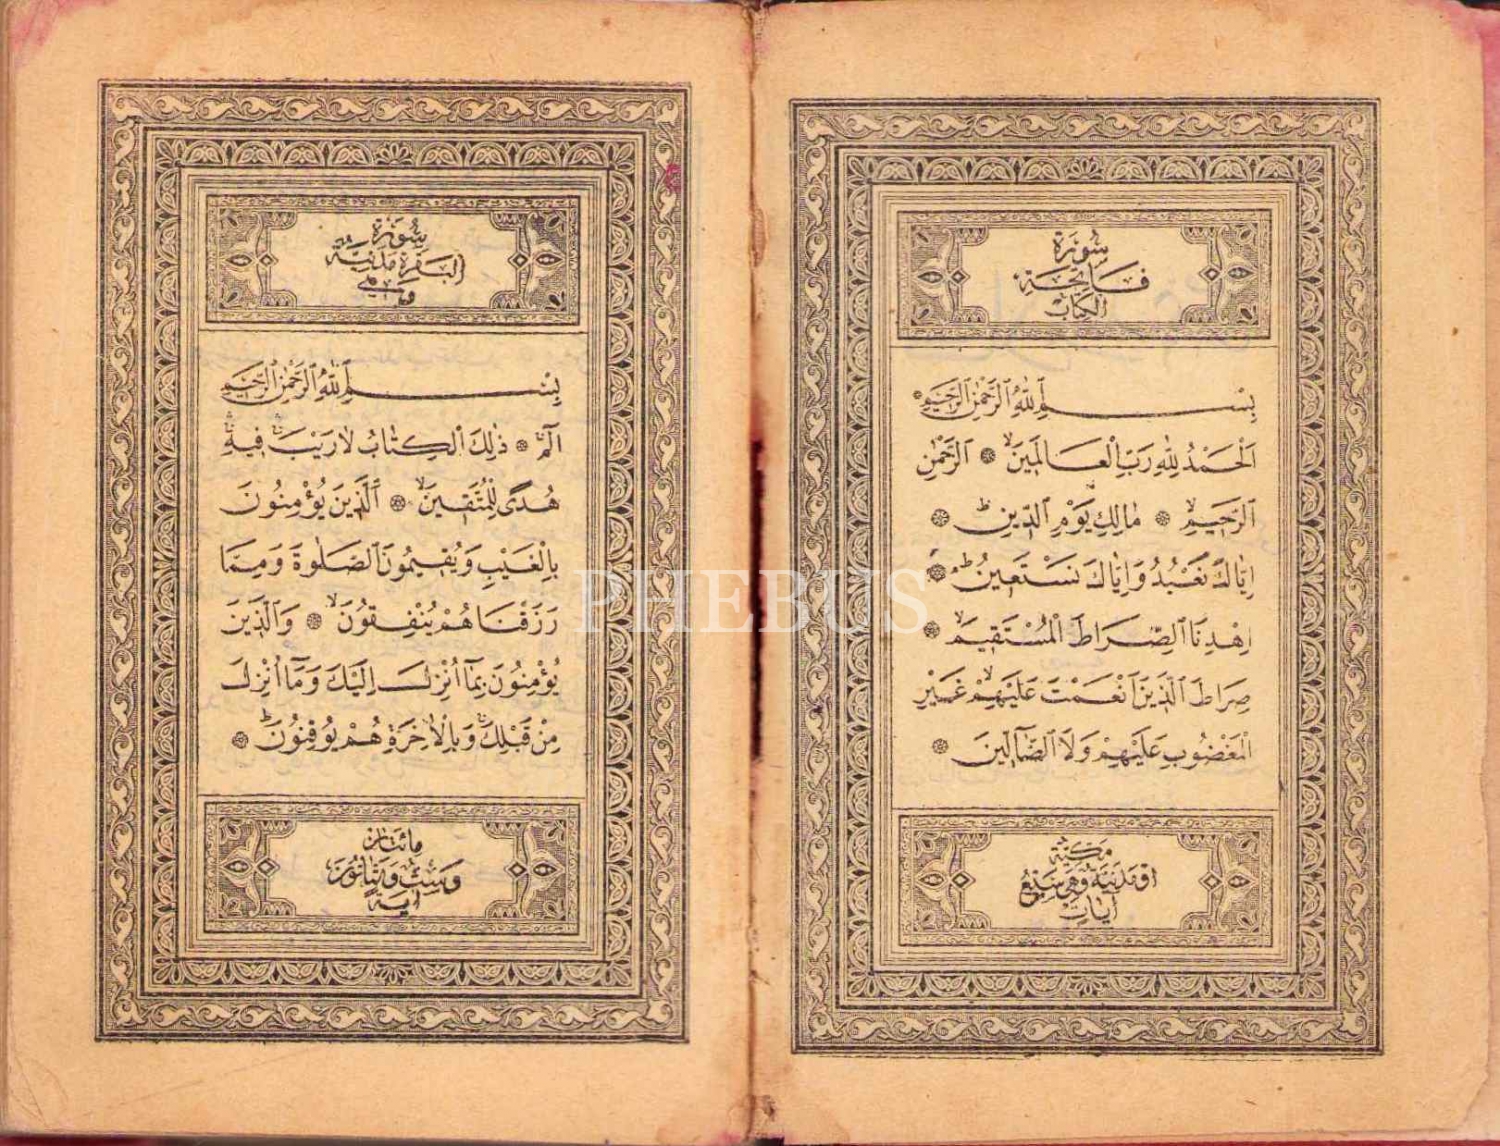 سُورَة
فَاتِحَة
الكِتَاب
بِسْمِ اللّٰهِ الرَّحْمٰنِ الرَّحٖيمِ
اَلْحَمْدُ لِلّٰهِ رَبِّ الْعَالَمٖينَۙ الرَّحْمٰنِ
الرَّحٖيمِۙ مَالِكِ يَوْمِ الدّٖينِۜ
اِيَّاكَ نَعْبُدُ وَاِيَّاكَ نَسْتَعٖينُۜ
اِهْدِنَا الصِّرَاطَ الْمُسْتَقٖيمَۙ
صِرَاطَ الَّذٖينَ اَنْعَمْتَ عَلَيْهِمْۙ غَيْرِ
الْمَغْضُوبِ عَلَيْهِمْ وَلَا الضَّٓالّٖينَ
مَكِّيَّة
اَوْ مَدَنِيَّة وَهِيَ سَبْعُ
اٰيَات
سُورَة
الْبَقَرَة مَدَنِيَّة
وَهِيَ
بِسْمِ اللّٰهِ الرَّحْمٰنِ الرَّحٖيمِ
الٓمٓۚ ذٰلِكَ الْكِتَابُ لَا رَيْبَۚ فٖيهِۚ
هُدًى لِلْمُتَّقٖينَۙ اَلَّذٖينَ يُؤْمِنُونَ
بِالْغَيْبِ وَيُقٖيمُونَ الصَّلٰوةَ وَمِمَّا
رَزَقْنَاهُمْ يُنْفِقُونَۙ وَالَّذٖينَ
يُؤْمِنُونَ بِمَٓا اُنْزِلَ اِلَيْكَ وَمَٓا اُنْزِلَ
مِنْ قَبْلِكَۚ وَبِالْاٰخِرَةِ هُمْ يُوقِنُونَۜ
مِائَتَانِ
وَسِتّ وَثَمَانُونَ
اٰيَة
PHEBUS